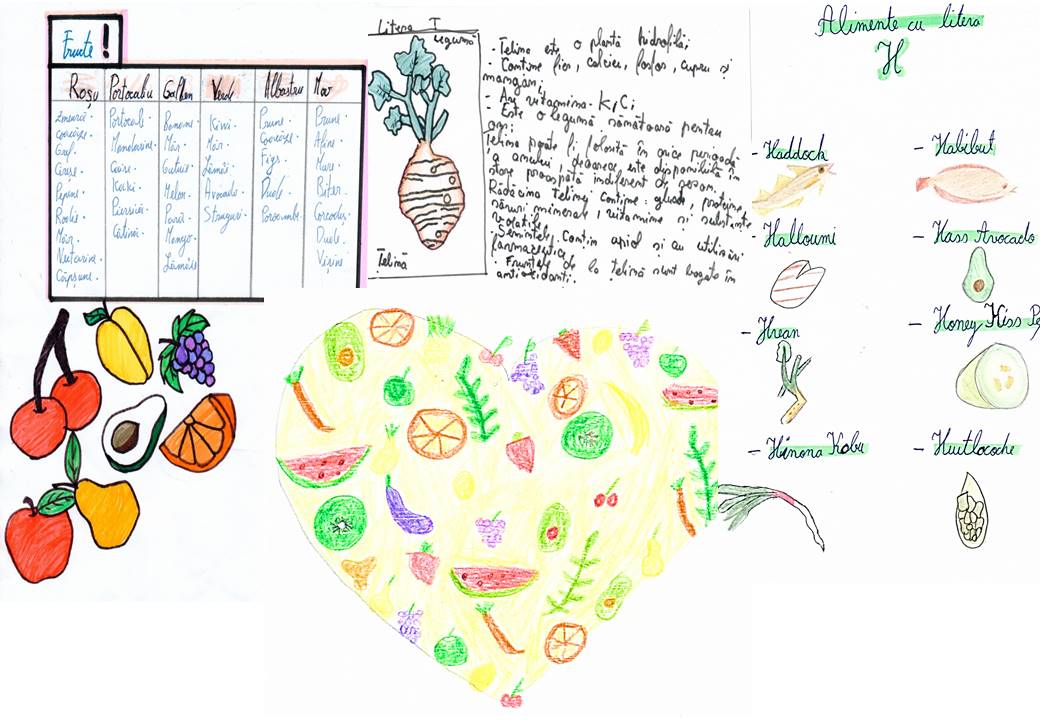 Fructe!
Roșu Portocaliu Galben Verde Albastru Mov
Zmeură. Portocală. Banane. Kiwi. Prune. Prune.
Mandarine. Măr. Măr. Afine.
Caise. Lămâi. Mure.
Cireșe. Kaki. Melon. Avocado.
Pepene. Piersică. Pară. Struguri. Porumbe. Corcodus.
Rodie. Cătină. Mango. Dude.
Măr. Lămâie. Vișine.
Nectarine.
Căpșune.
Litera T
Legumă
Țelină
- Țelina este o plantă hidrofilă;
- Conține fier, calciu, fosfor, cupru și
mangan;
- Are vitamina K; C;
- Este o legumă sănătoasă pentru
Țelina poate fi folosită în orice perioadă
a anului, deoarece este disponibilă în
stare proaspătă indiferent de sezon.
Rădăcina țelinei conține: glucide, proteine,
săruri minerale, vitamine și substanțe
volatile.
Semințele conțin apiol și au utilizări
farmaceutice.
Fructele de la țelină sunt bogate în
antioxidanți.
Alimente cu litera
H
- Haddock
- Halibut
- Halloumi
- Hass Avocado
- Hrean
- Honey Kiss
- Hinona Kabu
- Huitlacoche